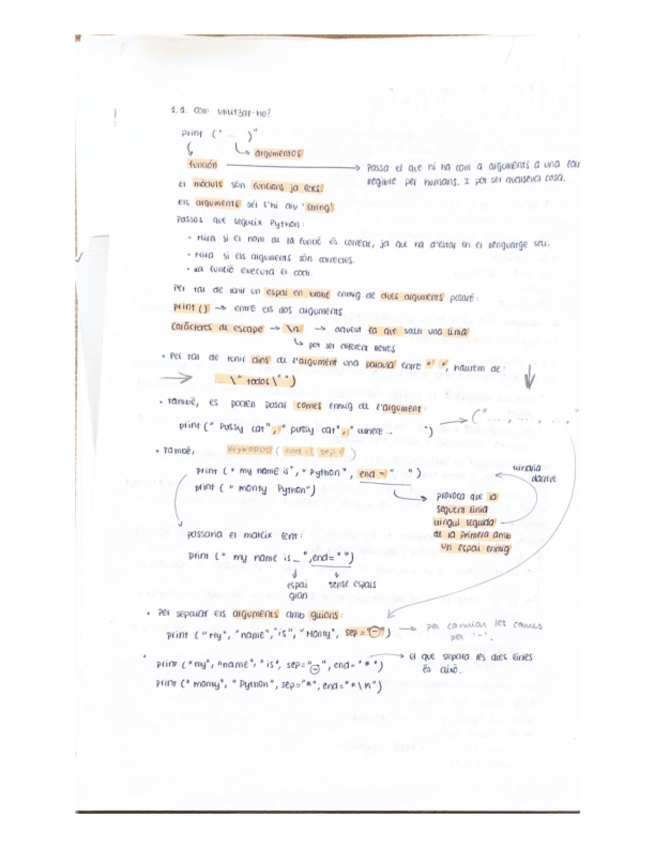 1.1. Com utilitzar-ho?
print (" ... )"
argumentos
función
Passa el que hi ha com a arguments a una
llegible per humans. I pot ser qualsevol cosa.
els mòduls són funcions ja fetes.
els arguments se'ls hi diu 'string'
Passos que segueix Python:
• Mira si el nom de la funció és correcte, ja que ha d'estar en el llenguatge seu.
• Mira si els arguments són correctes.
• La funció executa el codi.
Per tal de tenir un espai en blanc enmig de dues arguments posaré:
print () → entre els dos arguments
Caràcteres de escape → \n → aquest fa que salti una línia
per ser diferent
• Per tal de tenir dins de l'argument una paraula entre " ", haurem de:
\" tados \" ")
• També, es poden posar comes enmig de l'argument:
print (" Pussy cat", " pussy cat", " where ... ")
(" ..., ..., ..., "
• També, KEYWORDS ( end = i sep = )
print (" my name is", " Python", end = " ")
print (" Monty Python")
provoca que la
segona línia
vingui seguida
de la primera amb
un espai enmig
passaria el mateix fent:
print (" my name is _ ", end= " ")
espai
sense espais
• Per separar els arguments amb guions:
print ("My", "name", "is", "Monty", sep = "-") → per canviar les comes
per '-'.
• print ("my", "name", "is", sep="-", end= "*")
el que separa les dues línies
és això.
print (" Monty", " Python", sep="*", end="*\n")